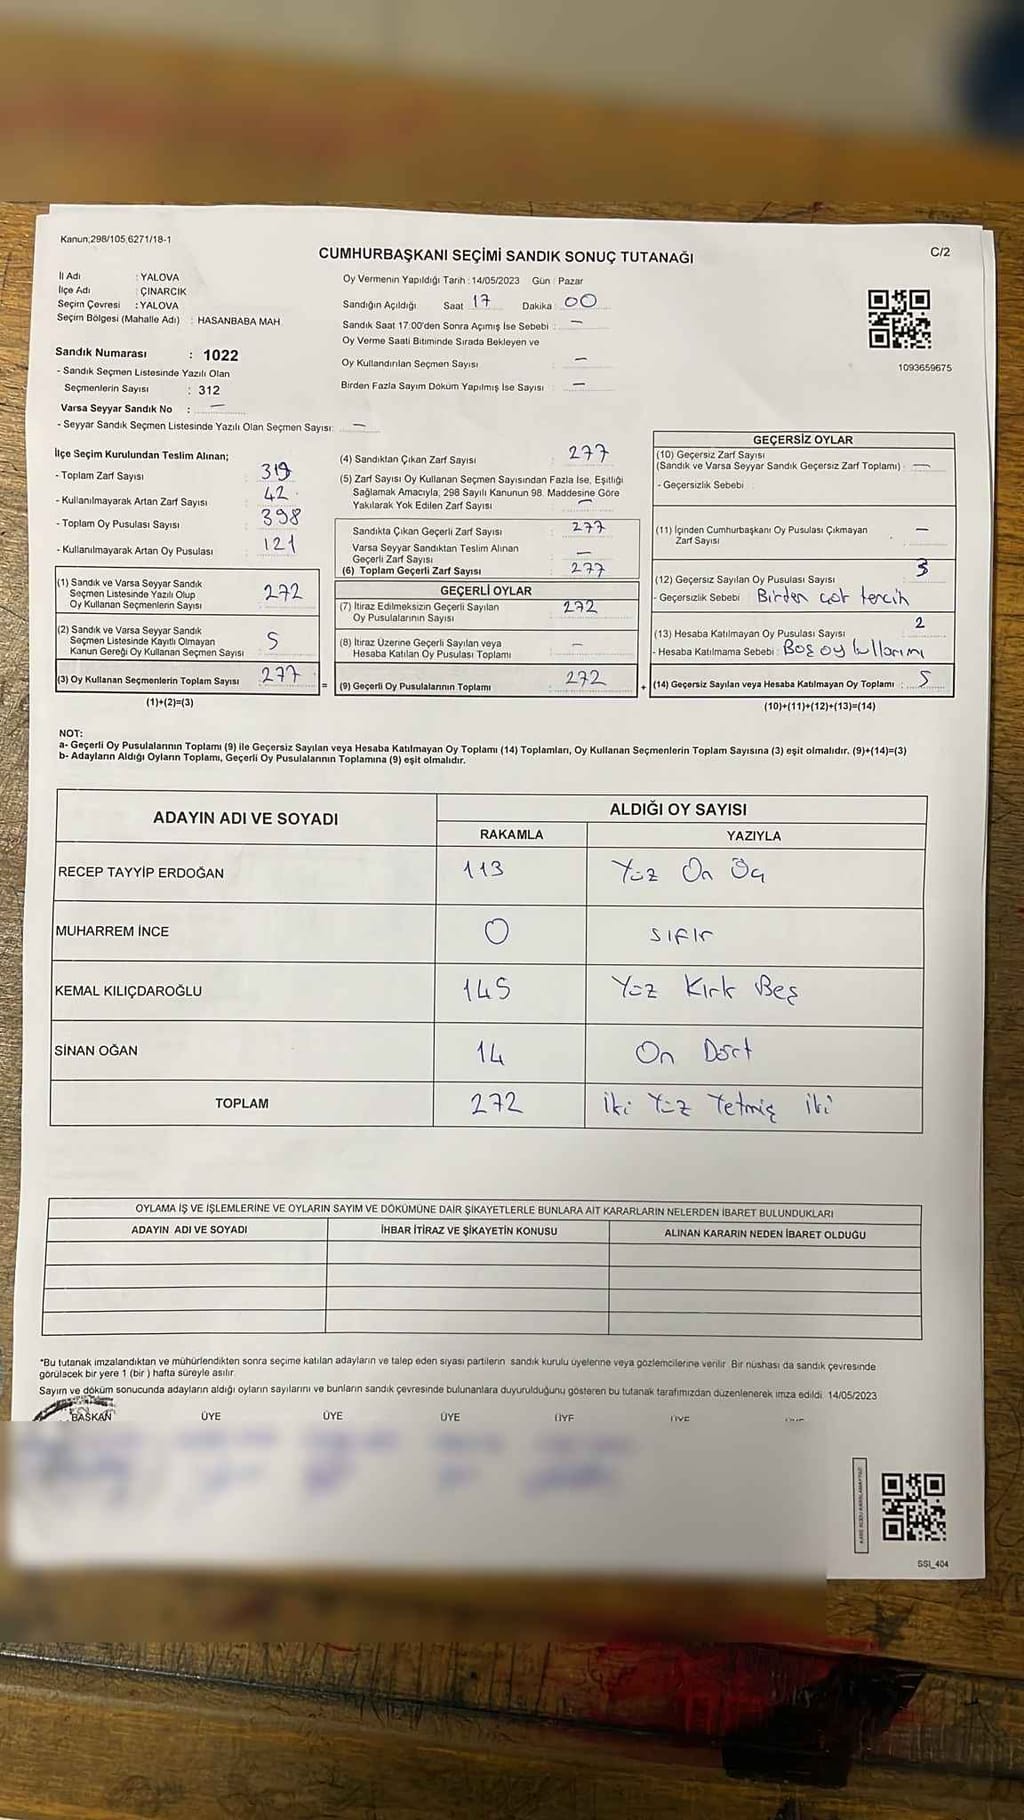 Kanun;298/105,6271/18-1
CUMHURBAŞKANI SEÇİMİ SANDIK SONUÇ TUTANAĞI
C/2
İl Adı : YALOVA
İlçe Adı : ÇINARCIK
Seçim Çevresi : YALOVA
Seçim Bölgesi (Mahalle Adı) : HASANBABA MAH.
Sandık Numarası : 1022
- Sandık Seçmen Listesinde Yazılı Olan
Seçmenlerin Sayısı : 312
Varsa Seyyar Sandık No : —
- Seyyar Sandık Seçmen Listesinde Yazılı Olan Seçmen Sayısı: —
Oy Vermenin Yapıldığı Tarih : 14/05/2023 Gün : Pazar
Sandığın Açıldığı Saat 17 Dakika : 00
Sandık Saat 17:00'den Sonra Açımış İse Sebebi : —
Oy Verme Saati Bitiminde Sırada Bekleyen ve
Oy Kullandırılan Seçmen Sayısı : —
Birden Fazla Sayım Döküm Yapılmış İse Sayısı : —
1093659675
İlçe Seçim Kurulundan Teslim Alınan;
- Toplam Zarf Sayısı : 319
- Kullanılmayarak Artan Zarf Sayısı : 42
- Toplam Oy Pusulası Sayısı : 398
- Kullanılmayarak Artan Oy Pusulası : 121
(1) Sandık ve Varsa Seyyar Sandık
Seçmen Listesinde Yazılı Olup
Oy Kullanan Seçmenlerin Sayısı : 272
(2) Sandık ve Varsa Seyyar Sandık
Seçmen Listesinde Kayıtlı Olmayan
Kanun Gereği Oy Kullanan Seçmen Sayısı : 5
(3) Oy Kullanan Seçmenlerin Toplam Sayısı : 277
(1)+(2)=(3)
(4) Sandıktan Çıkan Zarf Sayısı : 277
(5) Zarf Sayısı Oy Kullanan Seçmen Sayısından Fazla İse, Eşitliği
Sağlamak Amacıyla, 298 Sayılı Kanunun 98. Maddesine Göre
Yakılarak Yok Edilen Zarf Sayısı : —
Sandıkta Çıkan Geçerli Zarf Sayısı : 277
Varsa Seyyar Sandıktan Teslim Alınan
Geçerli Zarf Sayısı : —
(6) Toplam Geçerli Zarf Sayısı : 277
GEÇERLİ OYLAR
(7) İtiraz Edilmeksizin Geçerli Sayılan
Oy Pusulalarının Sayısı : 272
(8) İtiraz Üzerine Geçerli Sayılan veya
Hesaba Katılan Oy Pusulası Toplamı : —
= (9) Geçerli Oy Pusulalarının Toplamı : 272 +
GEÇERSİZ OYLAR
(10) Geçersiz Zarf Sayısı
(Sandık ve Varsa Seyyar Sandık Geçersiz Zarf Toplamı) : —
- Geçersizlik Sebebi :
(11) İçinden Cumhurbaşkanı Oy Pusulası Çıkmayan
Zarf Sayısı : —
(12) Geçersiz Sayılan Oy Pusulası Sayısı : 3
- Geçersizlik Sebebi : Birden çok tercih
(13) Hesaba Katılmayan Oy Pusulası Sayısı : 2
- Hesaba Katılmama Sebebi : Boş oy kullanımı
(14) Geçersiz Sayılan veya Hesaba Katılmayan Oy Toplamı : 5
(10)+(11)+(12)+(13)=(14)
NOT:
a- Geçerli Oy Pusulalarının Toplamı (9) ile Geçersiz Sayılan veya Hesaba Katılmayan Oy Toplamı (14) Toplamları, Oy Kullanan Seçmenlerin Toplam Sayısına (3) eşit olmalıdır. (9)+(14)=(3)
b- Adayların Aldığı Oyların Toplamı, Geçerli Oy Pusulalarının Toplamına (9) eşit olmalıdır.
ADAYIN ADI VE SOYADI
ALDIĞI OY SAYISI
RAKAMLA YAZIYLA
RECEP TAYYİP ERDOĞAN 113 Yüz On Üç
MUHARREM İNCE 0 sıfır
KEMAL KILIÇDAROĞLU 145 Yüz Kırk Beş
SİNAN OĞAN 14 On Dört
TOPLAM 272 İki Yüz Yetmiş İki
OYLAMA İŞ VE İŞLEMLERİNE VE OYLARIN SAYIM VE DÖKÜMÜNE DAİR ŞİKAYETLERLE BUNLARA AİT KARARLARIN NELERDEN İBARET BULUNDUKLARI
ADAYIN ADI VE SOYADI İHBAR İTİRAZ VE ŞİKAYETİN KONUSU ALINAN KARARIN NEDEN İBARET OLDUĞU
*Bu tutanak imzalandıktan ve mühürlendikten sonra seçime katılan adayların ve talep eden siyasi partilerin sandık kurulu üyelerine veya gözlemcilerine verilir. Bir nüshası da sandık çevresinde
görülecek bir yere 1 (bir ) hafta süreyle asılır.
Sayım ve döküm sonucunda adayların aldığı oyların sayılarını ve bunların sandık çevresinde bulunanlara duyurulduğunu gösteren bu tutanak tarafımızdan düzenlenerek imza edildi. 14/05/2023
BAŞKAN ÜYE ÜYE ÜYE ÜYE ÜYE
SSI_404